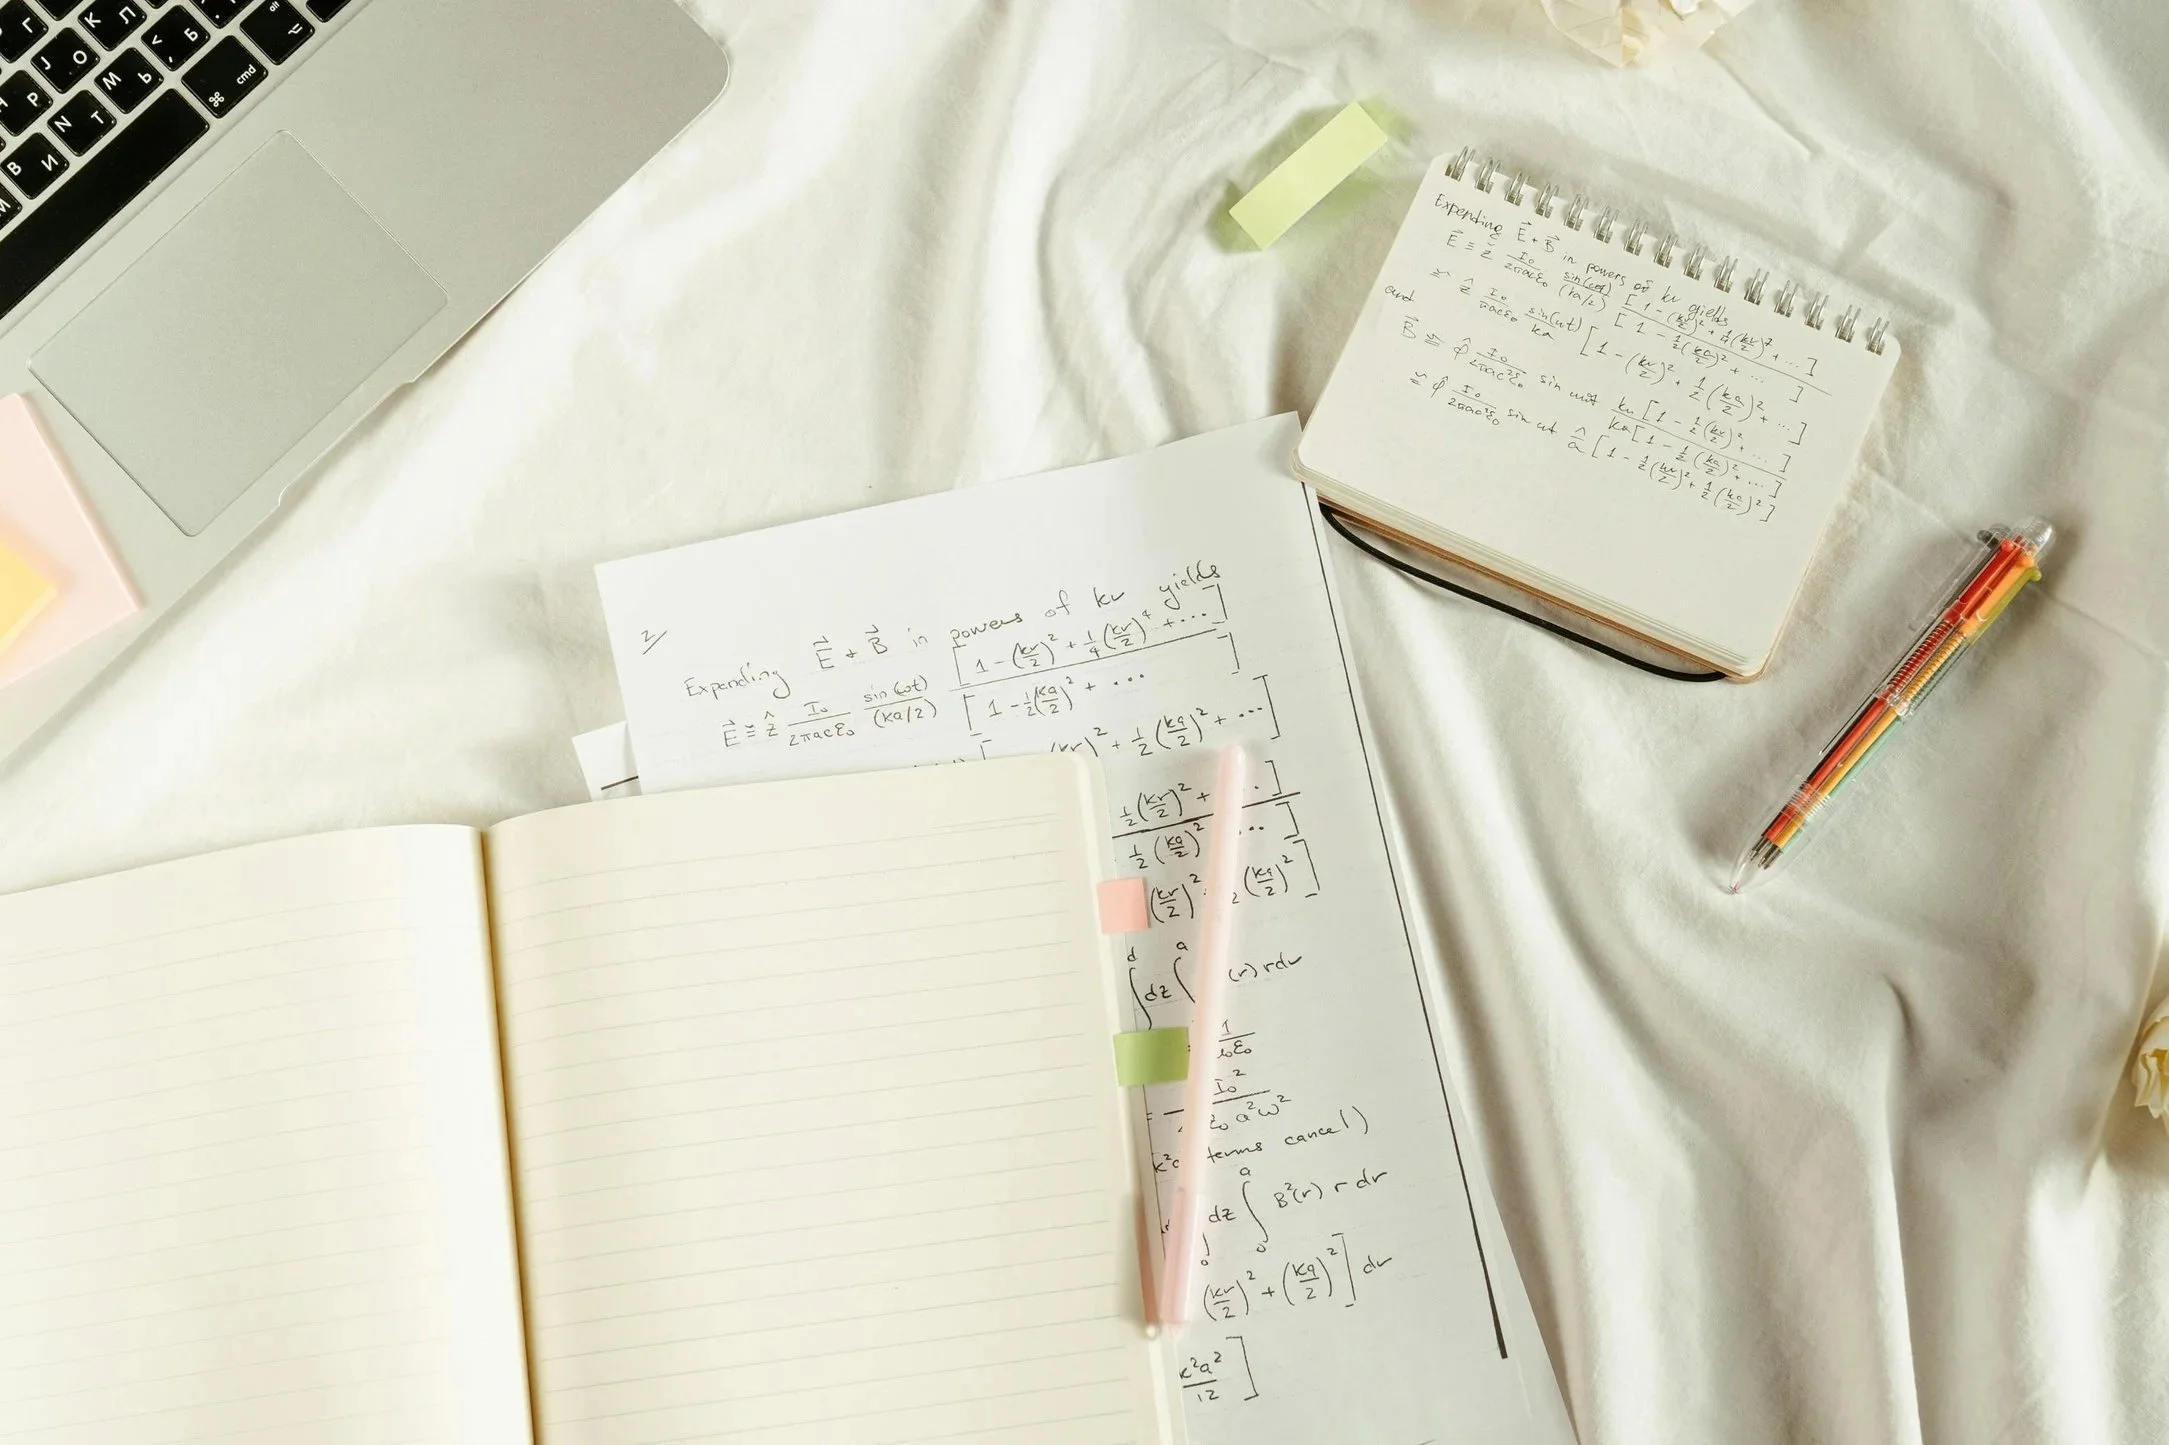 Г
К Л
J О < Б
Р М Ь ⌘ cmd alt ⌥
N Т
В И
М
Expending E⃗ + B⃗ in powers of kr yields
E⃗ ≅ ẑ I₀/2πacε₀ sin(ωt)/(ka/2) [1 - (kr/2)² + 1/4(kr/2)² + ...]/[1 - 1/2(ka/2)² + ...]
≅ ẑ I₀/πacε₀ sin(ωt)/ka [1 - (kr/2)² + 1/2(ka/2)² + ...]
and
B⃗ ≅ φ̂ I₀/2πac²ε₀ sin ωt kr[1 - 1/2(kr/2)² + ...]/ka[1 - 1/2(ka/2)² + ...]
≅ φ̂ I₀/2πac²ε₀ sin ωt /a [1 - 1/2(kr/2)² + 1/2(ka/2)²]
2/
Expending E⃗ + B⃗ in powers of kr yields
E⃗ ≅ ẑ I₀/2πacε₀ sin(ωt)/(ka/2) [1 - (kr/2)² + 1/4(kr/2)⁴ + ...]/[1 - 1/2(ka/2)² + ...]
² + 1/2(ka/2)² + ...]
1/2(kr/2)² + ...]
1/2(ka/2)² ...]
(kr/2)² (ka/2)²]
∫ d dz ∫ a (r) r dr
1/ε₀
= I₀²/ε₀ a²ω²
terms cancel)
∫ 0 dz ∫ a 0 B²(r) r dr
(kr/2)² + (ka/2)²] dr
k²a²/12]